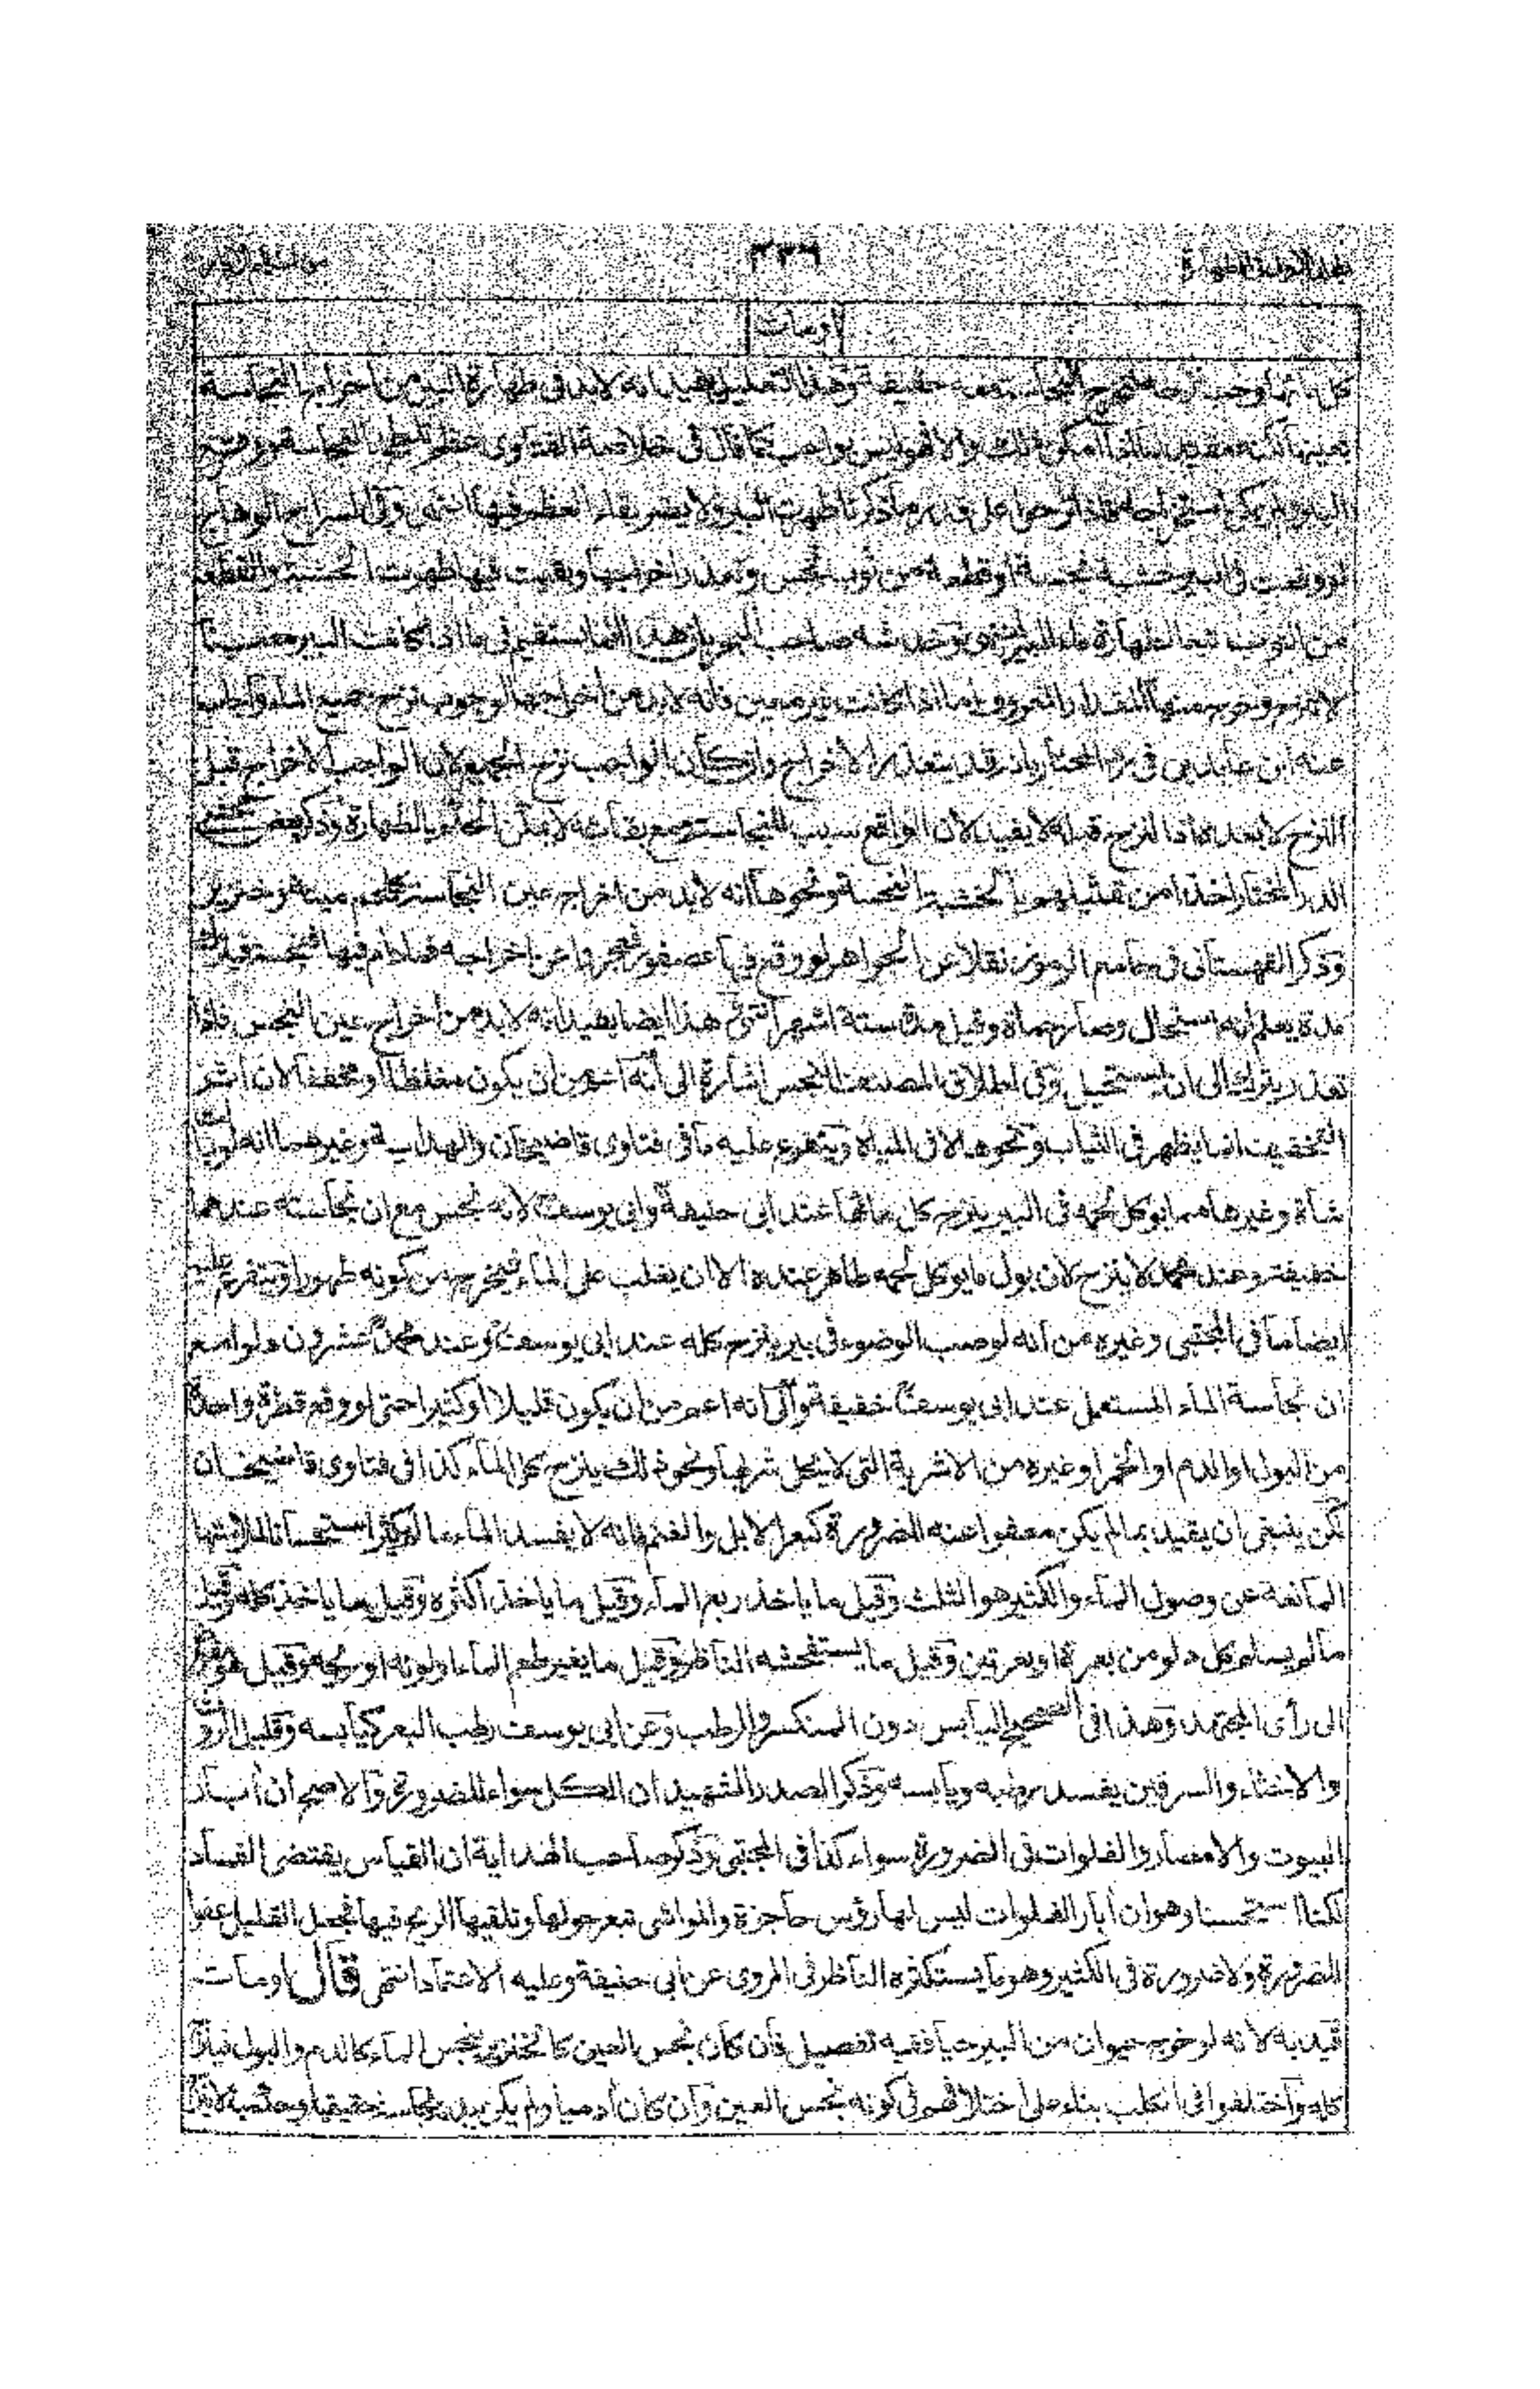 ٣٣٦
او مات
كل ما وجب نزحه النجاسة حقيقة وهذا التعليل يفيد انه لابد فى طهارة البير من اخراج النجاسة
بعينها لكنه مقيد بما اذا امكن ذلك والا فليس بواجب كما قال فى خلاصة الفتاوى عظم
البير على قدر ما ذكرنا طهرت البير ولا يضر بقاء العظم فيها انتهى وفى السراج الوهاج
لو وقعت فى البير خشبة نجسة او قطعة من ثوب نجس وتعذر اخراجها وبقيت فيها طهرت الخشبة والقطعة
من الثوب تبعا لطهارة ماء البير صاحب البحر بان هذا انما يستقيم فى ما اذا كانت البير معينا
لا تنزح منها المقدار المعروف اما اذا كانت غير معين فانه لابد من اخراجها لوجوب نزح جميع الماء واجاب
عنه ابن عابدين فى رد المحتار بانه قد يتعذر الاخراج وان كان الواجب نزح الجميع لان الواجب الاخراج قبل
النزح لا بعده فاذا نزح قبله لا يفيد لان الواقع سبب للنجاسة ومع بقائه لا يمكن الحكم بالطهارة وذكر بعض
الدر المختار اخذا من تمثيلهم بالخشبة النجسة ونحوها انه لابد من اخراج عين النجاسة كلحم ميتة وخنزير
وذكر القهستانى فى جامع الرموز نقلا عن الجواهر لو وقع فيها عصفور فعجزوا عن اخراجه فما دام فيها فنجسة فيترك
مدة يعلم انه استحال وصار حمأة وقيل مدة ستة اشهر انتهى هذا ايضا يفيد انه لابد من اخراج عين النجس فاذا
تعذر يترك الى ان يستحيل وفى اطلاق المصنف النجس اشارة الى انه اعم من ان يكون مغلظا او مخففا لان اثر
التخفيف انما يظهر فى الثياب ونحوها لا فى المياه ويتفرع عليه ما فى فتاوى قاضيخان والهداية وغيرهما انه لو بالت
شاة وغيرها مما يوكل لحمه فى البير ينزح كل مائها عند ابى حنيفة وابى يوسف لانه نجس مع ان نجاسته عندهما
خفيفة وعند محمد لا ينزح لان بول ما يوكل لحمه طاهر عنده الا ان يغلب على الماء فيخرج من كونه طهورا ويتفرع عليه
ايضا ما فى المجتبى وغيره من انه لو صب الوضوء فى بير ينزح كله عند ابى يوسف وعند محمد عشرون دلوا مع
ان نجاسة الماء المستعمل عند ابى يوسف خفيفة والى انه اعم من ان يكون قليلا او كثيرا حتى لو وقع قطرة واحدة
من البول او الدم او الخمر او غيره من الاشربة التى لا يحل شربها ونحو ذلك ينزح كل الماء كذا فى فتاوى قاضيخان
لكن ينبغى ان يقيد بما لم يكن معفوا عنه للضرورة كبعر الابل والغنم فانه لا يفسد الماء ما لم يكثر استحسانا لصلابتها
المانعة عن وصول الماء والكثير هو الثلث وقيل ما ياخذ ربع الماء وقيل ما ياخذ اكثره وقيل ما ياخذ كله وقيل
ما لم يسلم كل دلو من بعرة او بعرتين وقيل ما يستفحشه الناظر وقيل ما يغير طعم الماء او لونه او ريحه وقيل هو مفوض
الى رأى المجتهد وهذا فى الصحيح اليابس دون المنكسر والرطب وعن ابى يوسف رطب البعر كيابسه وقليل الروث
والاخثاء والسرقين يفسد رطبه ويابسه وذكر الصدر الشهيد ان الكل سواء للضرورة والاصح ان أبار
البيوت والامصار والفلوات فى الضرورة سواء كذا فى المجتبى وذكر صاحب الهداية ان القياس يقتضى الفساد
لكنا استحسنا وهو ان أبار الفلوات ليس لها رؤس حاجزة والمواشى تبعر حولها وتلقيها الريح فيها فجعل القليل عفوا
للضرورة ولا ضرورة فى الكثير وهو ما يستكثره الناظر فى المروى عن ابى حنيفة وعليه الاعتماد انتهى قال او مات
قيد به لانه لو خرج حيوان من البير حيا ففيه تفصيل فان كان نجس العين كالخنزير ينجس الماء كالدم والبول فينزح
كله واختلفوا فى الكلب بناء على اختلافهم فى كونه نجس العين وان كان أدميا ولم يكن بدنه نجاسة حقيقية وحكمية لا ينزح